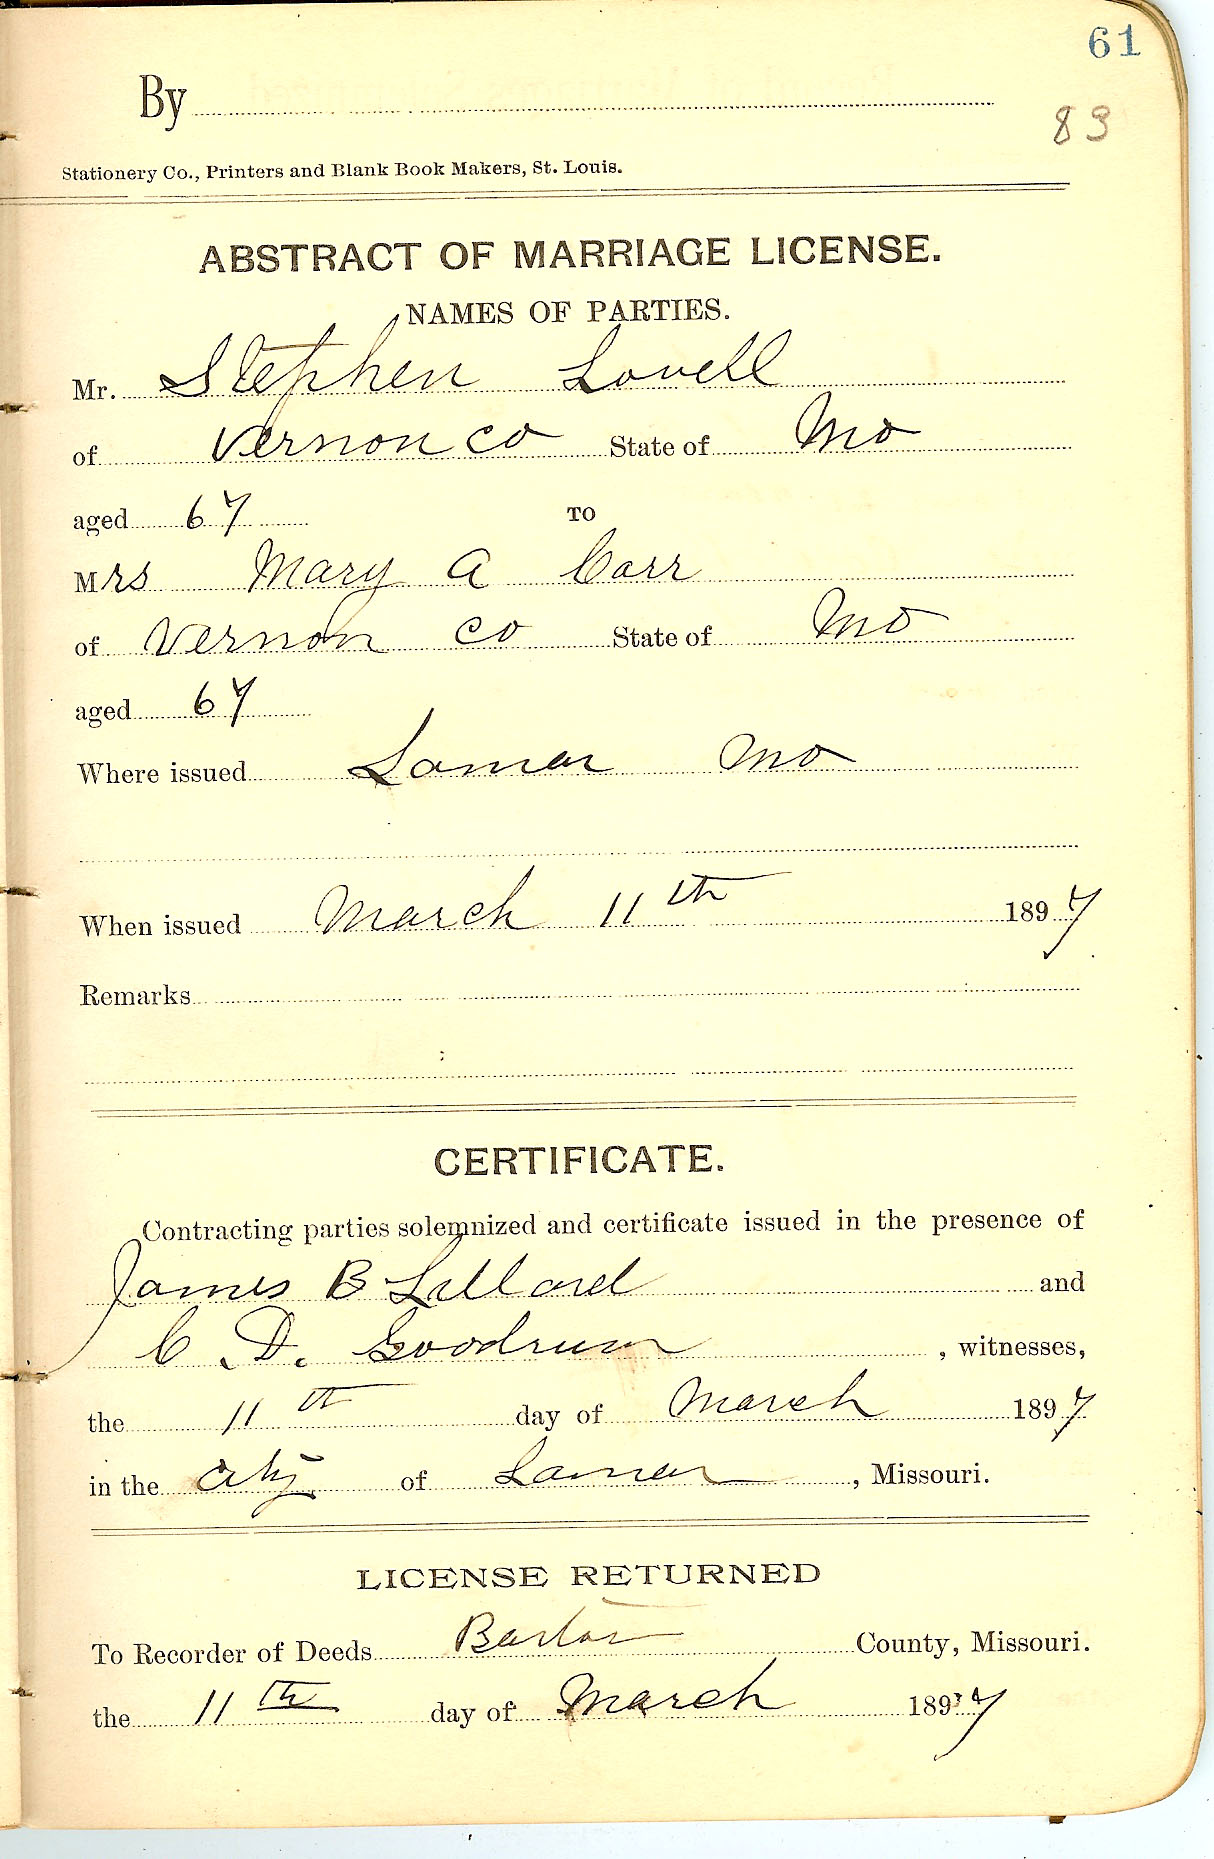 61
By
83
Stationery Co., Printers and Blank Book Makers, St. Louis.
ABSTRACT OF MARRIAGE LICENSE.
NAMES OF PARTIES.
Mr. Stephen Lovell
of Vernon co State of Mo
aged 67 TO
Mrs Mary A Carr
of Vernon co State of Mo
aged 67
Where issued Lamar Mo
When issued March 11th 1897
Remarks
CERTIFICATE.
Contracting parties solemnized and certificate issued in the presence of
James B Lillard and
C. D. Goodrum , witnesses,
the 11th day of March 1897
in the city of Lamar , Missouri.
LICENSE RETURNED
To Recorder of Deeds Barton County, Missouri.
the 11th day of March 1897